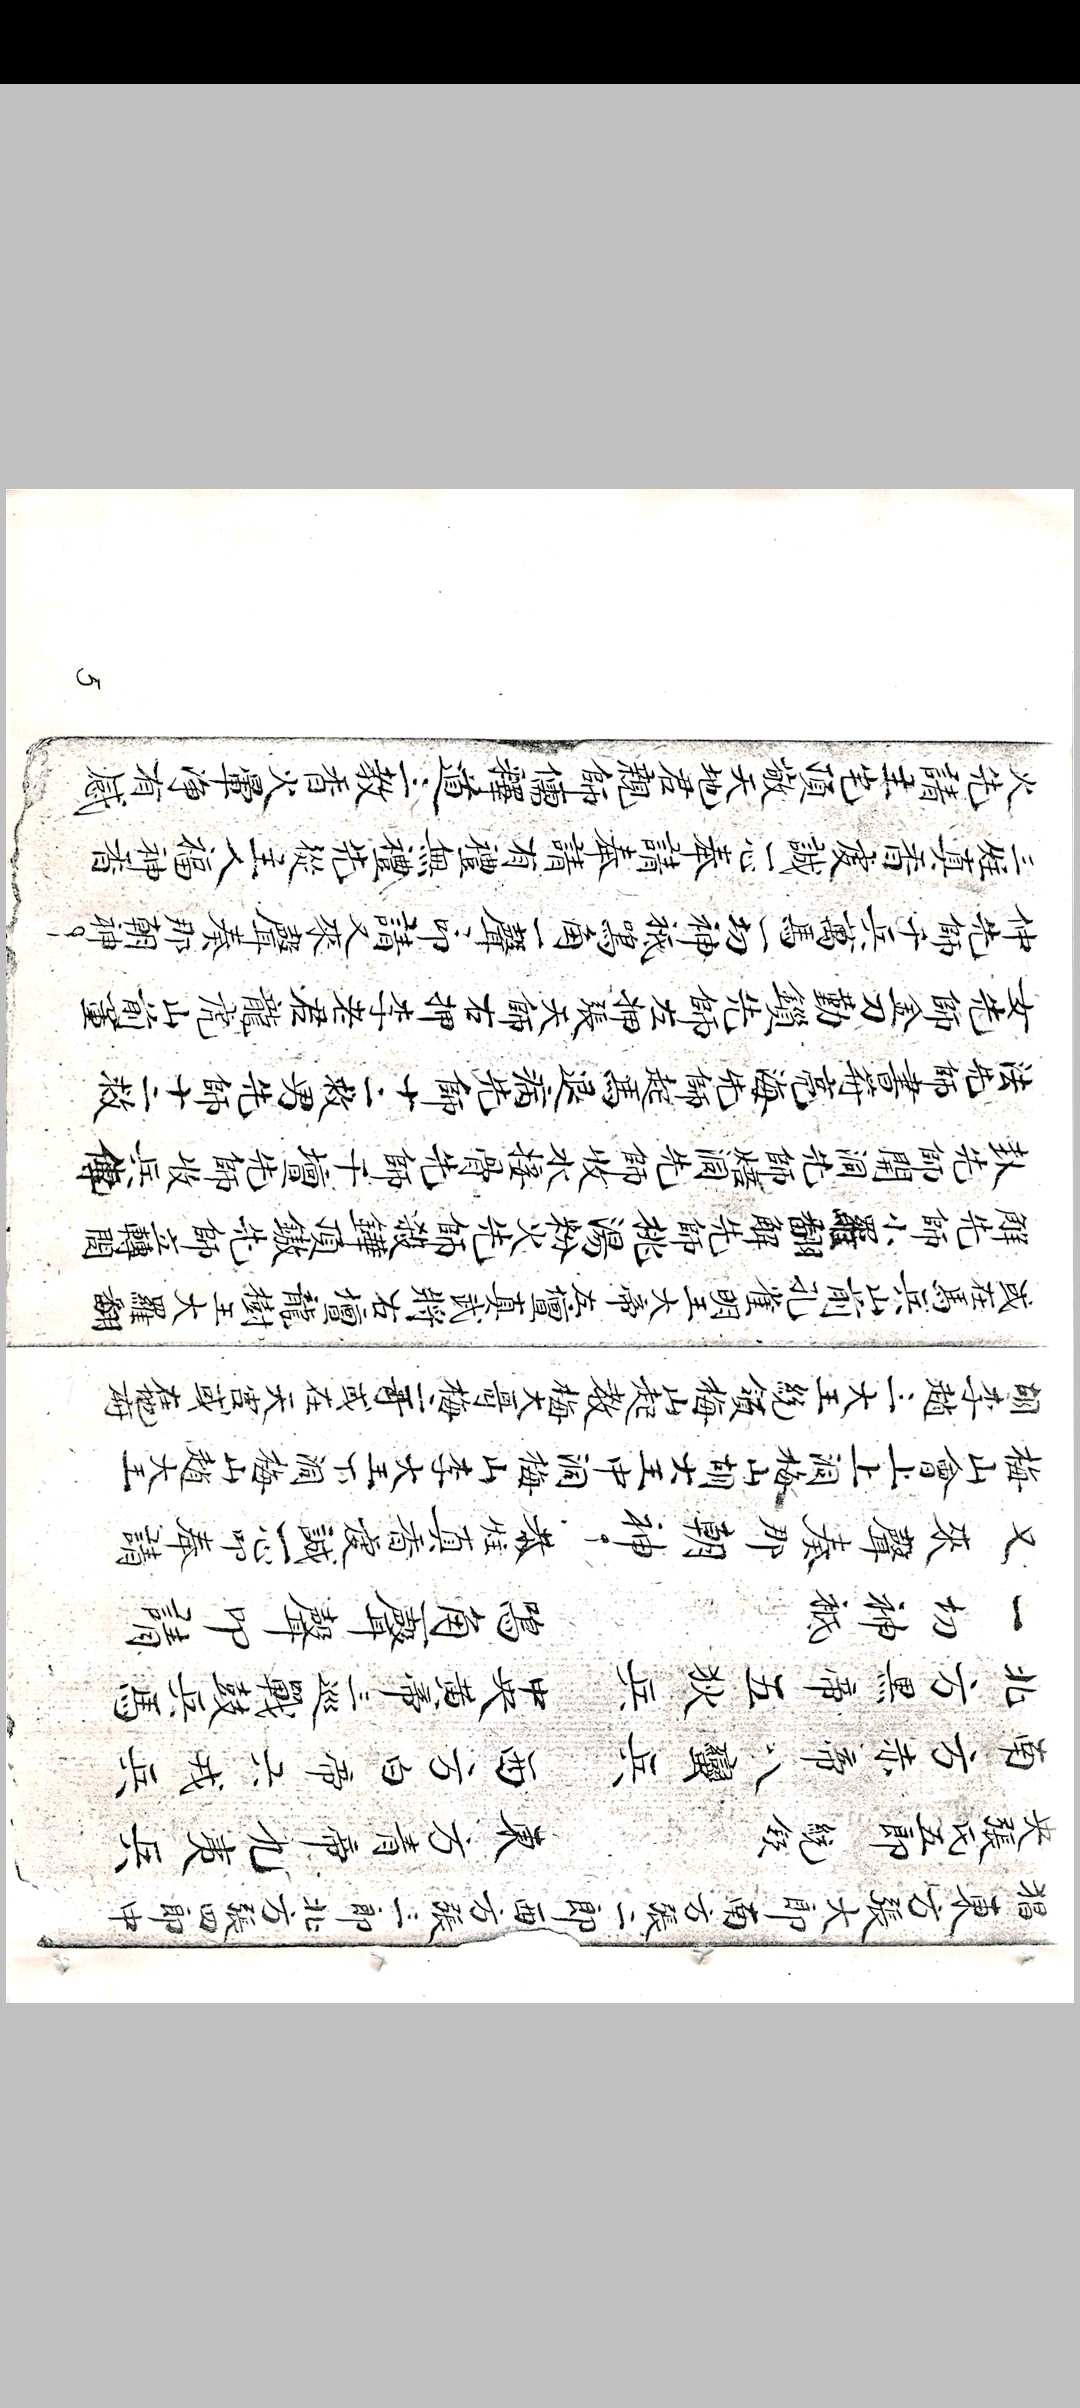 猖東方張大郎南方張二郎西方張三郎北方張四郎中
央張氏五郎統 東方青帝九夷兵
南方赤帝八蠻兵 西方白帝六戎兵
北方黑帝五狄兵 中央黃帝三巡戰鼓兵馬
一切神祇 鳴角聲聲叩請
又來聲奏那朝神。恭炷真香虔誠一心叩奉請
梅山會上上洞梅山胡大王中洞梅山李大王下洞梅山趙大王
胡李趙三大王統領梅山起教梅大哥梅二哥或在天宮或在地府
或在馬兵山前孔雀明王大帝左壇真武將右壇龍樹王大羅翻
解先師小羅翻解先師桃湯火先師殺鏵頂先師立轉閣
卦先師開洞先師洞先師收水接骨先師千壇先師收兵傳
法先師書符亮海先師起馬退病先師十二教男先師十二教
女先師金刀勸先師左押張天師右押李老君龍虎山前董
仲先師千兵萬馬一切神祇鳴角一聲聲叩請又來聲奏那朝神。
三炷真香虔誠一心奉請奉請有禮無禮先從主人福神香
火先請主宅頂敬天地君親師儒釋道三教香火淨有感
5